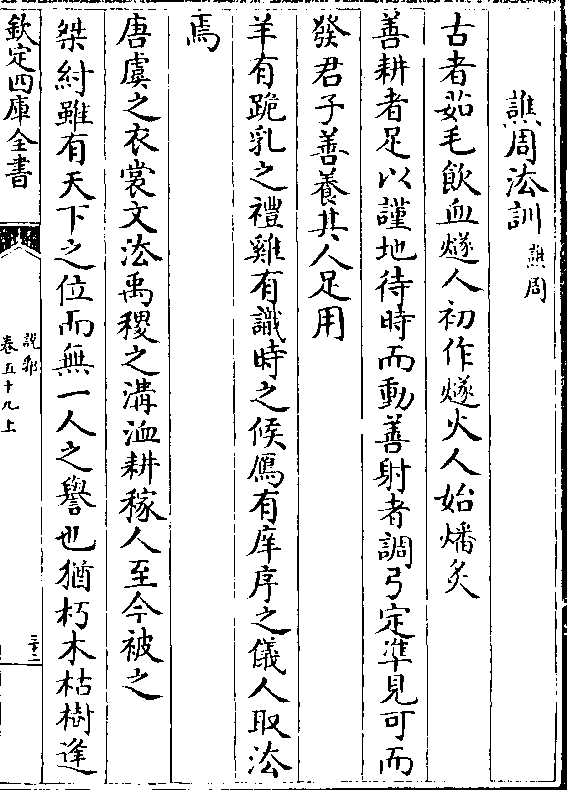 譙周法訓 譙周
古者茹毛飲血燧人初作燧火人始燔炙
善耕者足以謹地待時而動善射者調弓定準見可而
發君子善養其人足用
羊有跪乳之禮雞有識時之候鴈有庠序之儀人取法
焉
唐虞之衣裳文法禹稷之溝洫耕稼人至今被之
桀紂雖有天下之位而無一人之譽也猶朽木枯樹逢
欽定四庫全書
說郛
卷五十九上
三十二